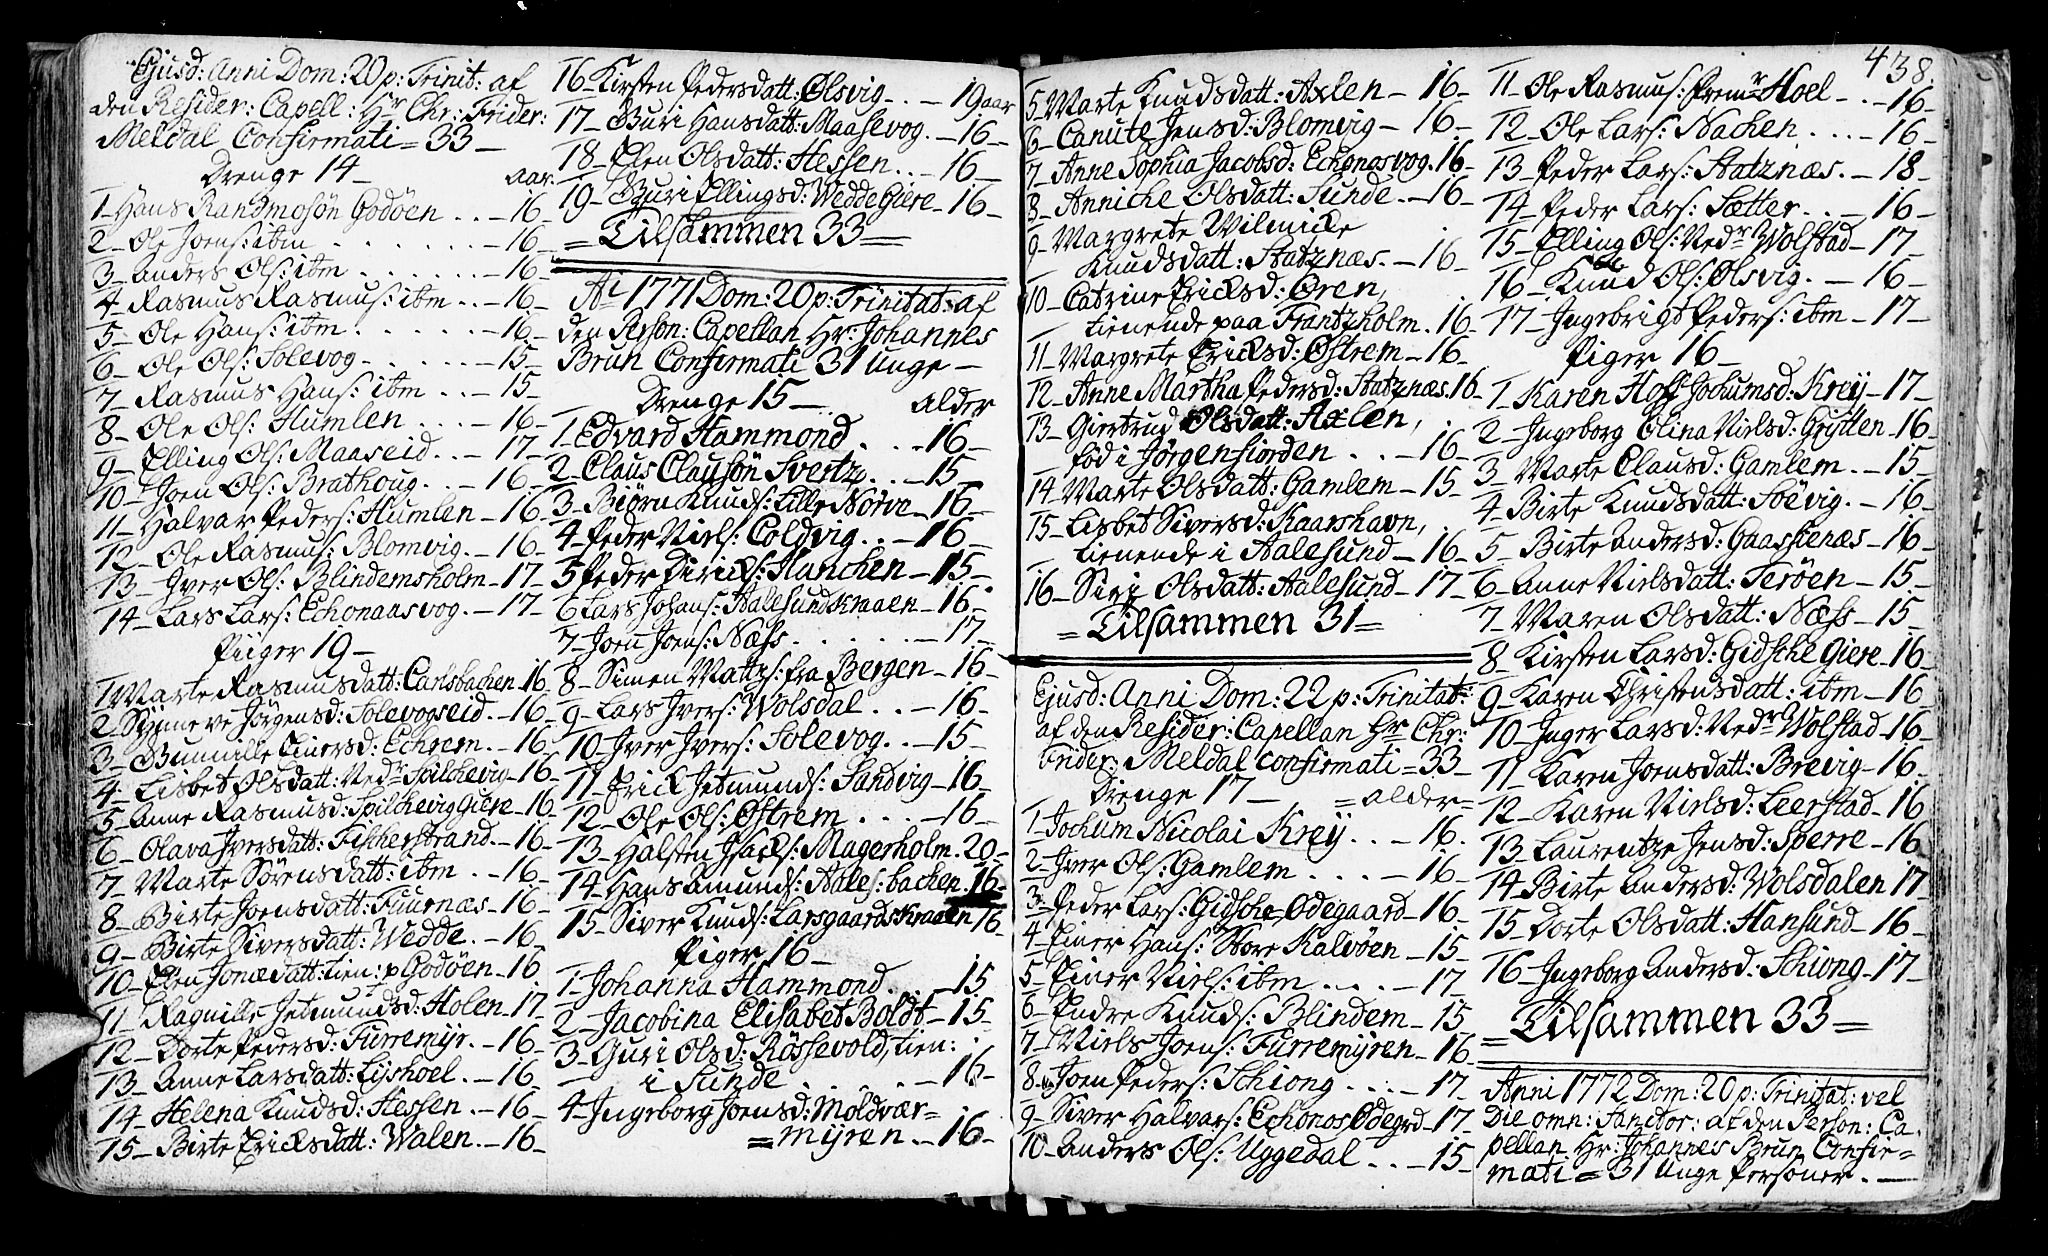 Ejusd: Anni Dom: 20 p: Trinit: af
den Resider: Capell: Hr Chr: Frider:
Meldal Confirmati = 33 –
Drenge 14 – aar.
1 – Hans Randmosön Godöen . . – 16 –
2 – Ole Joens: ibm . . . . . – 16 –
3 – Anders Ols: ibm . . . . . – 16 –
4 – Rasmus Rasmus: ibm . . – 16 –
5 – Ole Hans: ibm . . . . . – 16 –
6 – Ole Ols: Solevog – . . . . – 15 –
7 – Rasmus Hans: ibm . . – 15 –
8 – Ole Ols: Humlen . . . – 16 –
9 – Elling Ols: Maaseid . . – 17 –
10 – Joen Ols: Brathoug . . – 16 –
11 – Halvar Peders: Humlen – 16 –
12 – Ole Rasmus: Blomvig. – 16 –
13 – Iver Ols: Blindemsholm – 17 –
14 – Lars Lars: Echonaasvog. – 17 –
Piiger 19 –
1 Marte Rasmusdatt: Carlsbachen 16
2 Synneve Jörgensd: Solevogseid – 16 –
3 – Bunnille Einersd: Echrem. – 16
4 – Lisbet Olsdatt: Nedr Spilchevig – 16 –
5 – Anne Rasmusd: Spilchevig Giere – 16
6 – Olava Iversdatt: Fischerstrand. – 16 –
7 – Marte Sörensdatt: ibm . . – 16 –
8 – Birte Joensdatt: Fuurnæs – 16 –
9 – Birte Siversdatt: Wedde. – 16 –
10 – Elen Jonædatt: tien: p Godöen – 16
11 – Ragnille Jetmundsd: Holen 17
12 – Dorte Pedersd: Furremÿr. – 16
13 – Anne Larsdatt: Lyshoel. – 16 –
14 – Helena Knudsd: Hessen . – 16 –
15 – Birte Ericksdatt: Walen. – 16 –
16 – Kirsten Pedersdatt: Ølsvig – . – 19 aar
17 – Guri Hansdatt: Maasevog. – 16 –
18 – Elen Olsdatt: Hessen . . – 16 –
19 – Guri Ellingsd: Wedde Giere – 16 –
= Tilsammen 33 =
Ao 1771 Dom: 20 p: Trinitat: af
den Person: Capellan Hr: Johannes
Brun Confirmati 31 Unge –
Drenge 15 – alder
1 – Edvard Hammond . . – 16 –
2 – Claus Clausön Svertz . . – 15 –
3 – Biörn Knuds: Lille Nörve – 16 –
4 – Peder Niels: Coldvig . . – 16 –
5 Peder Diricks: Hunchen – 15 –
6 Lars Johans: Aalesundkraaen – 16 –
7 – Joen Joens: Næss . . . . . – 17 –
8 – Simen Mattis: fra Bergen – 16 –
9 – Lars Ivers: Wolsdal . . – 16 –
10 – Iver Ivers: Solevog . . – 15 –
11 – Erick Jetmunds: Sandvig – 16 –
12 – Ole Ols: Østrem . . . – 16 –
13 – Halsten Isacks: Magerholm . 20 –
14 – Hans Amunds: Aales: bachen . 16 –
15 – Siver Knuds: Larsgaards Kraaen 16 –
Piger 16 –
1 – Johanna Hammond . . – 15
2 – Jacobina Elisabet Boldt – 15 –
3 – Guri Olsd: Rössevold, tien:
i Sunde . . . . . – 16 –
4 – Ingeborg Joensd: Moldvær =
= mÿren . – 16 –
438.
5 – Marte Knudsdatt: Axlen – 16 –
6 – Canute Jensd: Blomvig – 16 –
7 – Anne Sophia Jacobsd: Echonasvog. 16 –
8 – Anniche Olsdatt: Sunde. – 16 –
9 – Margrete Wilmicke
Knudsdatt: Statznæs. – 16 –
10 – Catrine Ericksd: Ören,
tienende paa Frantzholm . 16 –
11 – Margrete Ericksd: Østrem – 16 –
12 – Anne Martha Pedersd: Statznæs. 16 –
13 – Giertrud Olsdatt: Axlen,
föd i Jörgenfiorden . . . – 16 –
14 – Marte Olsdatt: Gamlem – 15 –
15 – Lisbet Siversd: Kaarshavn,
tienende i Aalesund – 16 –
16 – Siri Olsdatt: Aalesund – 17 –
= Tilsammen 31 =
Ejusd: Anni Dom: 22 p: Trinitat:
af den Resider: Capellan Hr Chr:
Frider: Meldal confirmati = 33 –
Drenge 17 – = alder =
1 – Jochum Nicolai Kreÿ . . – 16 .
2 – Iver Ols: Gamlem . . . – 16 –
3 – Peder Lars: Gidsche Ødegaard – 16 –
4 – Einer Hans: Store Kalvöen – 15 –
5 – Einer Niels: ibm . . . – 17 –
6 – Endre Knuds: Blindem – 15 –
7 – Niels Joens: Furremÿren – 16 –
8 – Joen Peders: Schiong . . . – 17 –
9 – Siver Halvars: Echonos Ødegrd – 17 –
10 – Anders Ols: Uggedal . . – 15 –
11 – Ole Rasmus: Fremr Hoel – . – 16 –
12 – Ole Lars: Nachen . . . – 16 –
13 – Peder Lars: Statznæs. – 18 –
14 – Peder Lars: Sætter. . . – 16 –
15 – Elling Ols: Nedr Wolstad – 17 –
16 – Knud Ols: Ølsvig . – 16 –
17 – Ingebrigt Peders: ibm – 17 –
Piger 16 –
1 – Karen Hoff Jochumsd: Kreÿ – 17 –
2 – Ingeborg Olina Nielsd: Grÿtten – 16 –
3 – Marte Clausd: Gamlem . – 15 –
4 – Birte Knudsdatt: Söevig . – 16 –
5 – Birte Andersd: Gaasstenæs – 16 –
6 – Anne Nielsdatt: Teröen – 15 –
7 – Maren Olsdatt: Næss – 15 –
8 – Kirsten Larsd: Gidsche Giere – 16 –
9 – Karen Christensdatt: ibm – 16 –
10 – Inger Larsd: Nedr Wolstad – 16 –
11 – Karen Joensdatt: Brevig – 16 –
12 – Karen Nielsd: Leerstad – 16
13 – Laurentze Jensd: Sperre – 16
14 – Birte Andersd: Wolsdalen 17
15 – Dorte Olsdatt: Hansund – 16 –
16 – Ingeborg Andersd: Schiong – 17 –
= Tilsammen 33 =
Anni 1772 Dom: 20 p: Trinitat: vel
Die omn: Sanctor: af den Person: Ca-
pellan Hr: Johannes Brun Confir =
mati = 31 Unge Personer . –